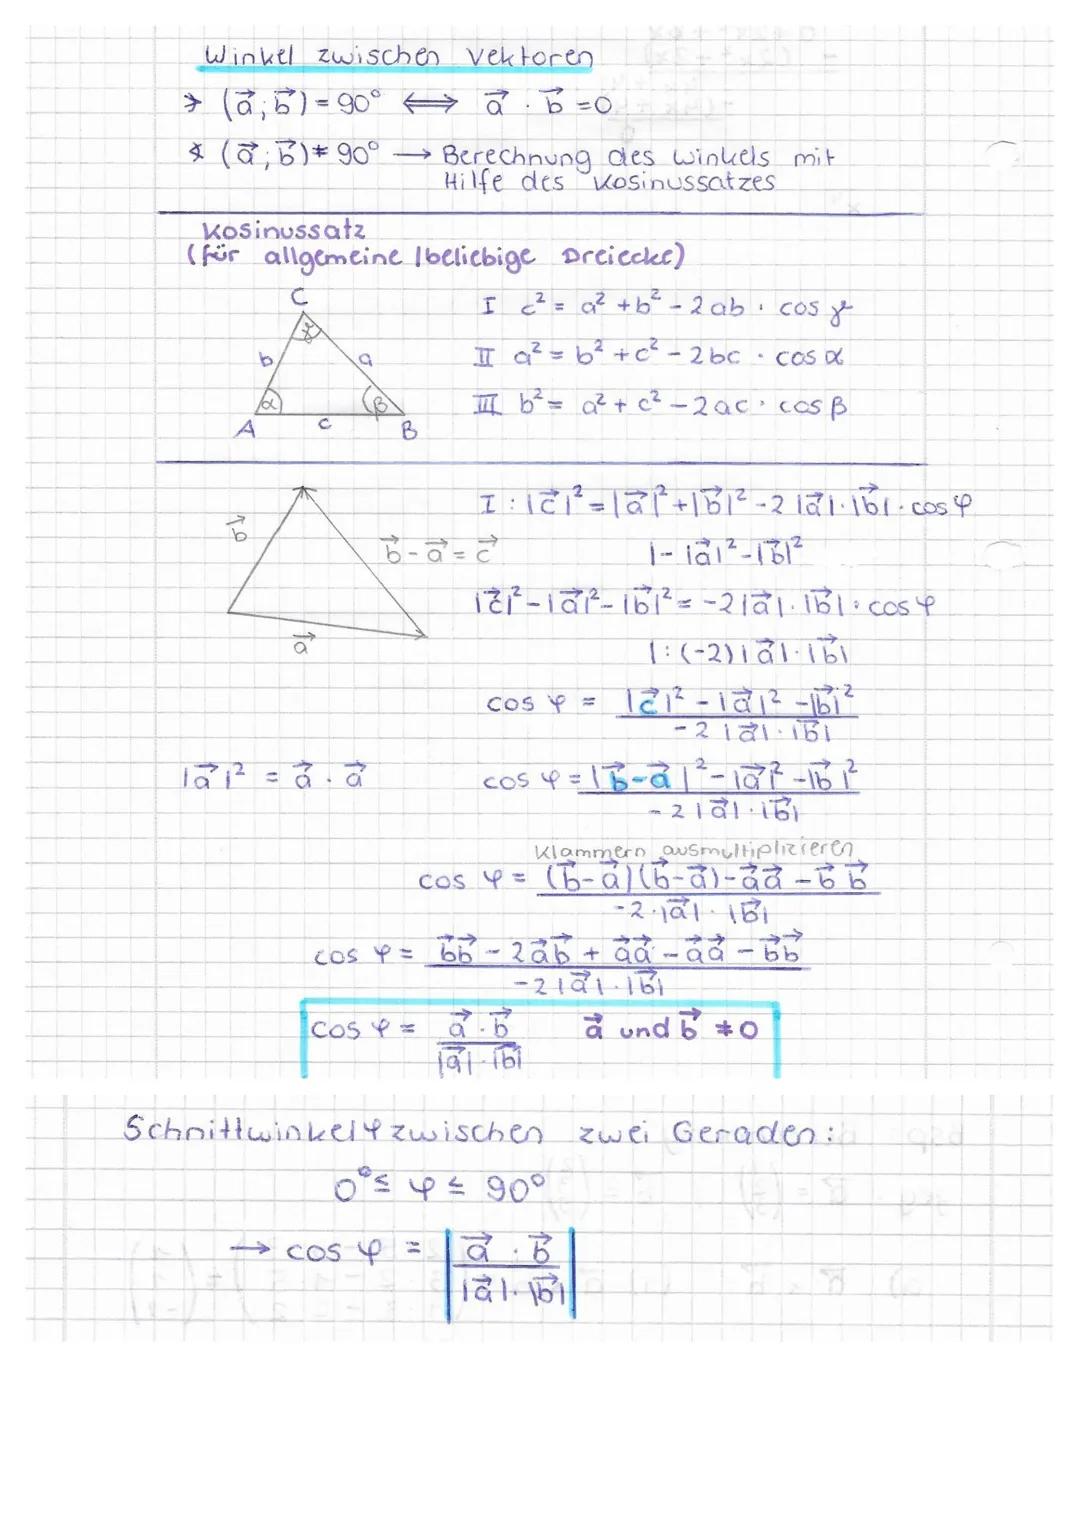 Winkel zwischen Vektoren
∢ (a⃗; b⃗) = 90° ⟺ a⃗ · b⃗ = 0
∢ (a⃗; b⃗) ≠ 90° → Berechnung des Winkels mit
Hilfe des Kosinussatzes
Kosinussatz
(für allgemeine / beliebige Dreiecke)
C
I c² = a² + b² - 2ab · cos γ
γ
b a
II a² = b² + c² - 2bc · cos α
α β
III b² = a² + c² - 2ac · cos β
A c B
I : |c⃗|² = |a⃗|² + |b⃗|² - 2 |a⃗| · |b⃗| · cos φ
b⃗
b⃗ - a⃗ = c⃗
| - |a⃗|² - |b⃗|²
|c⃗|² - |a⃗|² - |b⃗|² = -2 |a⃗| · |b⃗| · cos φ
a⃗
| : (-2) |a⃗| · |b⃗|
cos φ = |c⃗|² - |a⃗|² - |b⃗|²
-2 |a⃗| · |b⃗|
|a⃗|² = a⃗ · a⃗
cos φ = |b⃗ - a⃗|² - |a⃗|² - |b⃗|²
-2 |a⃗| · |b⃗|
Klammern ausmultiplizieren
cos φ = (b⃗ - a⃗)(b⃗ - a⃗) - a⃗a⃗ - b⃗b⃗
-2 · |a⃗| · |b⃗|
cos φ = b⃗b⃗ - 2a⃗b⃗ + a⃗a⃗ - a⃗a⃗ - b⃗b⃗
-2 |a⃗| · |b⃗|
cos φ = a⃗ · b⃗ a⃗ und b⃗ ≠ 0
|a⃗| · |b⃗|
Schnittwinkel φ zwischen zwei Geraden:
0° ≤ φ ≤ 90°
→ cos φ = | a⃗ · b⃗ |
|a⃗| · |b⃗|